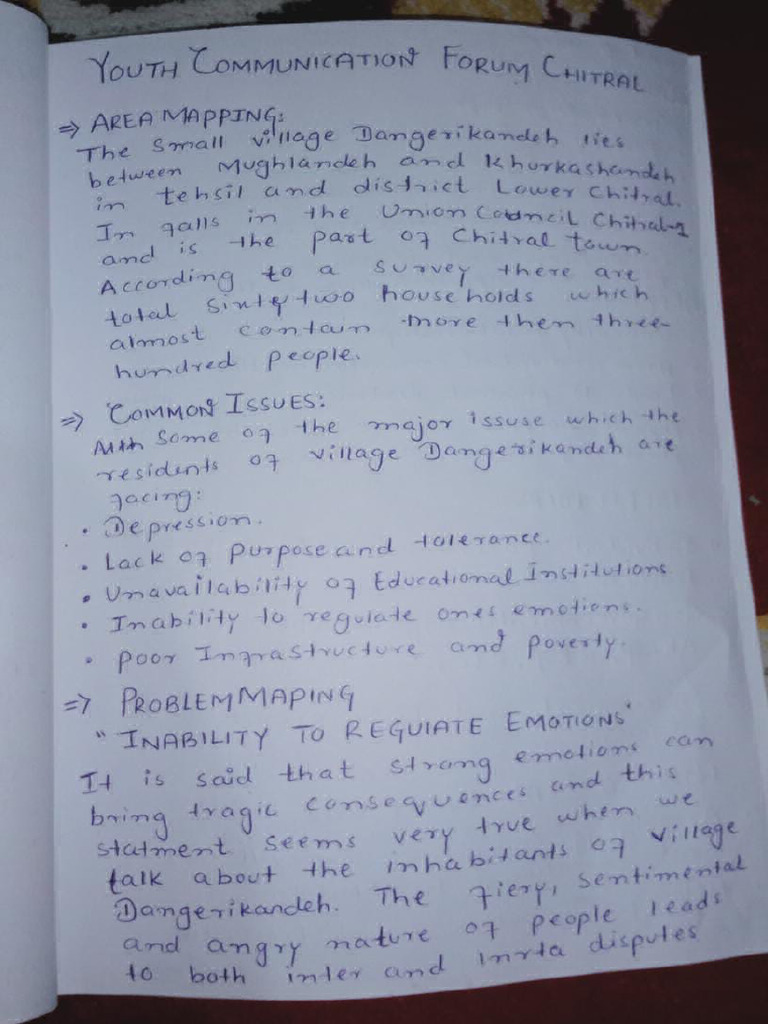 YOUTH COMMUNICATION FORUM CHITRAL
⇒ AREA MAPPING:
The small village Dangerikandeh lies
between Mughlandeh and Khurkashandeh
in tehsil and district Lower Chitral.
In falls in the Union Council Chitral-1
and is the part of Chitral town.
According to a survey there are
total sixty two households which
almost contain more then three-
hundred people.
⇒ COMMON ISSUES:
Some of the major issuse which the
residents of village Dangerikandeh are
facing:
• Depression.
• Lack of purpose and tolerance.
• Unavailability of Educational Institutions
• Inability to regulate ones emotions.
• Poor Infrastructure and poverty.
⇒ PROBLEM MAPING
"INABILITY TO REGULATE EMOTIONS"
It is said that strong emotions can
bring tragic consequences and this
statment seems very true when we
talk about the inhabitants of village
Dangerikandeh. The fiery, sentimental
and angry nature of people leads
to both inter and inrta disputes